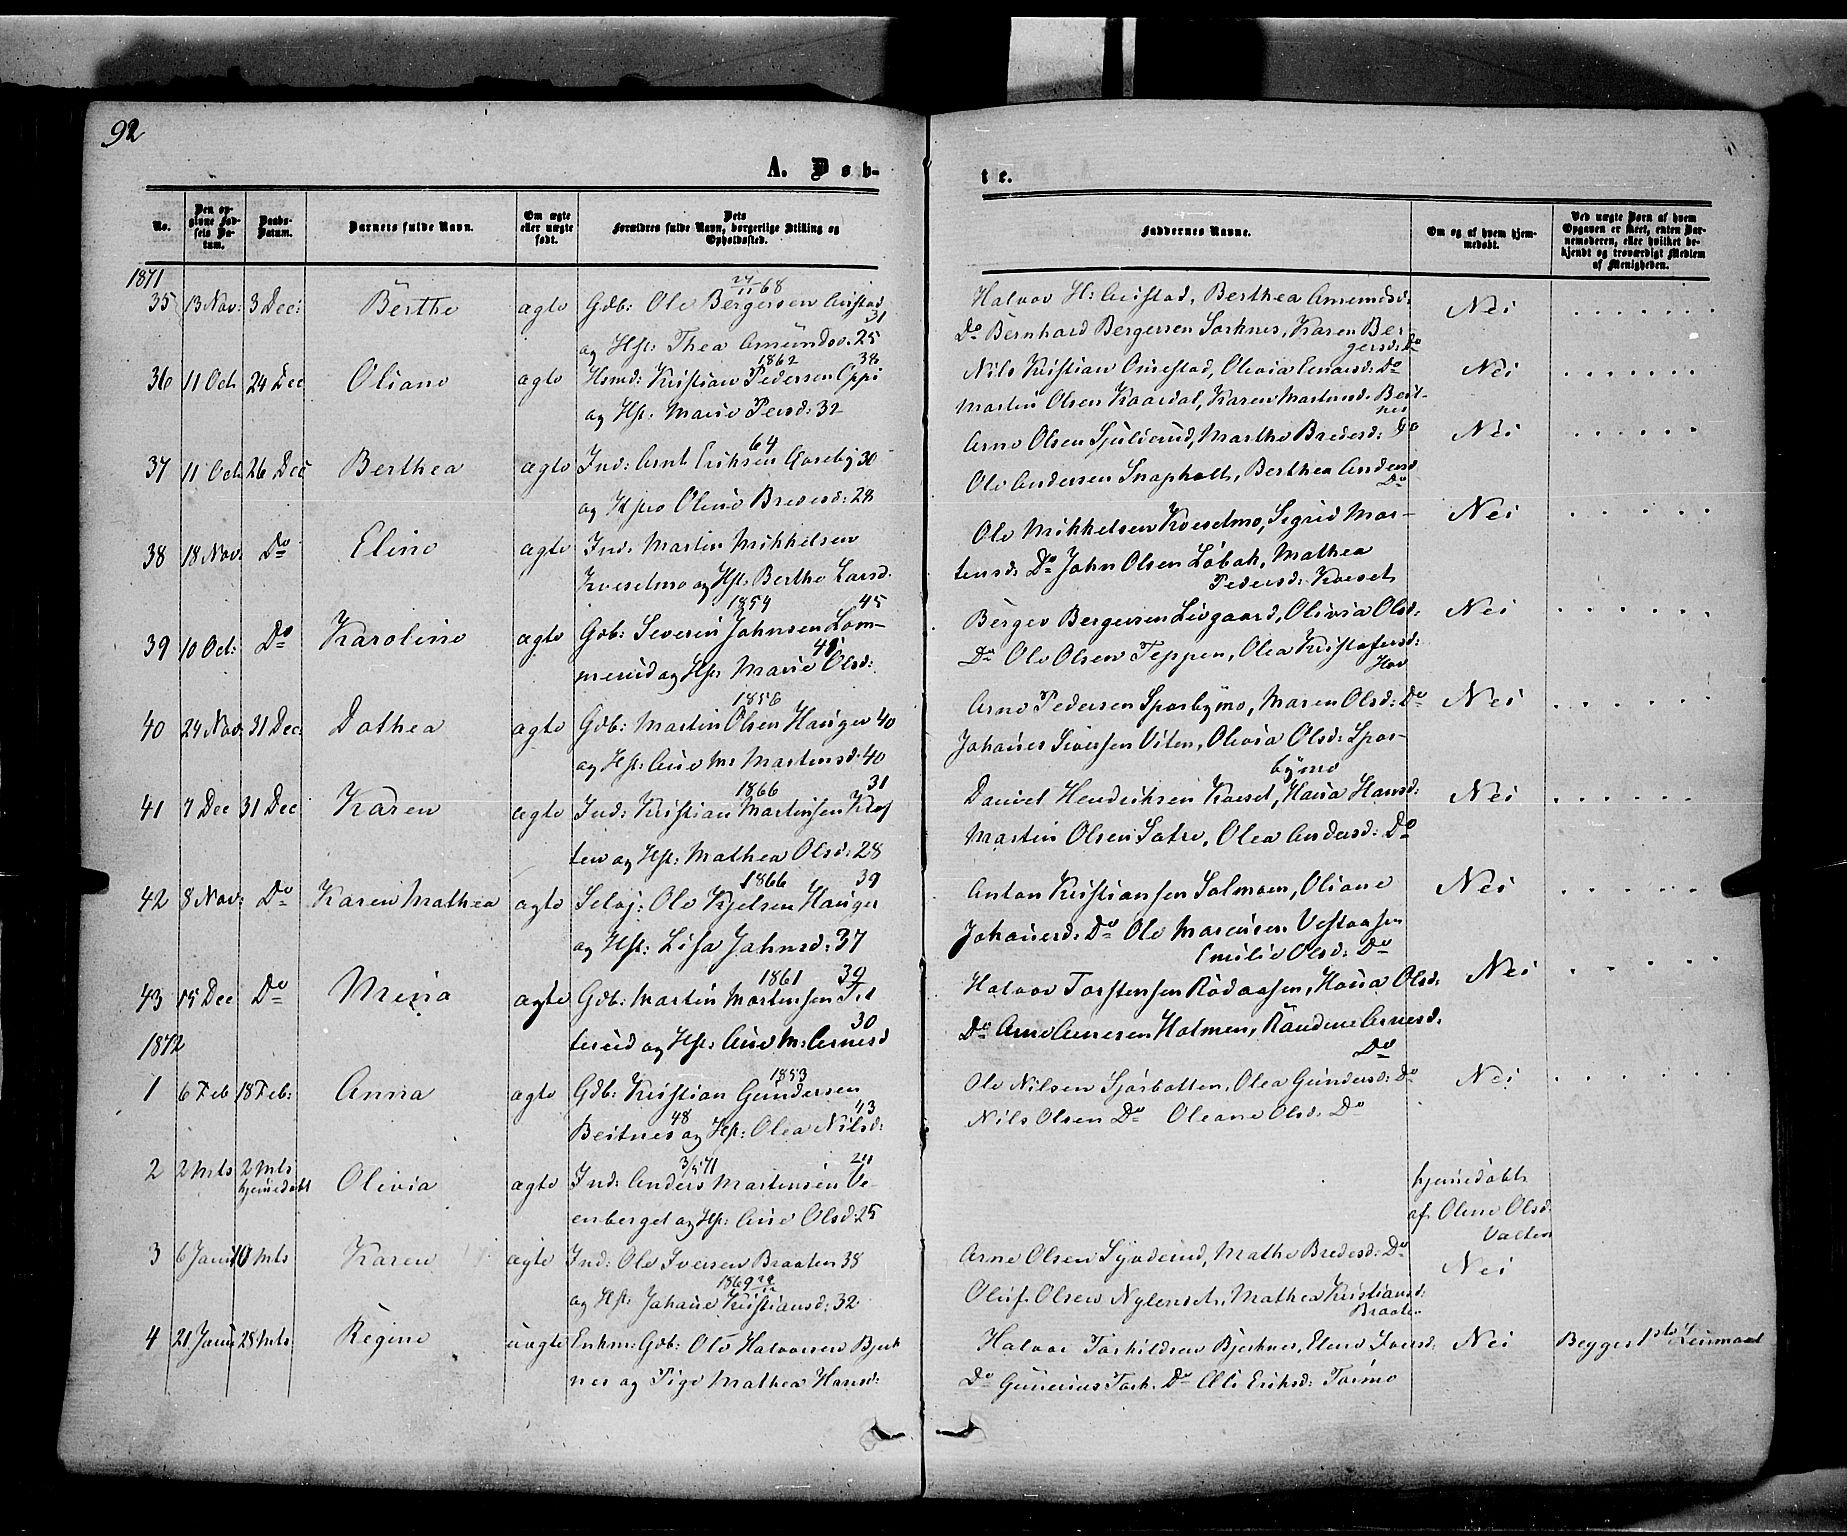 92
A. Døb-
te.
No.
Den opgivne Fødsels Datum.
Daabs-Datum.
Barnets fulde Navn.
Om ægte eller uægte født.
Dets Forældres fulde Navn, borgerlige Stilling og Opholdssted.
Faddernes Navne.
Om og af hvem hjemmedøbt.
Ved uægte Børn af hvem Opgaven er skeet, enten Barnemoderen, eller hvilket bekjendt og troværdigt Medlem af Menigheden.
1871
35 13 Nov: 3 Dec: Berthe ægte Gdb: Ole Bergersen Austad 31
og Hst: Thea Amundsd. 25
Halvor H: Austad, Berthea Amundsd: Nei
Do Bernhard Bergersen Sorknes, Karen Bergersd: Do
36 11 Oct 24 Dec Oliane ægte Husmd: Kristian Pedersen Oppi 38
1862
og Hst: Marie Persd: 32
Nils Kristian Omestad, Olivia Einarsd: Do Nei
Martin Olsen Kaardal, Karen Martinsd: Beitnes
37 11 Oct 26 Dec Berthea ægte Ind: Arnt Eriksen Aaseby 30
64
og Hstro Oline Bredesd: 28
Arne Olsen Sjulderud, Marthe Bredesd: Do Nei
Ole Andersen Snapholt, Berthea Andersd Do
38 18 Nov: Do Eline ægte Ind: Martin Mikkelsen
Kveselmo og Hst: Berthe Larsd.
Ole Mikkelsen Kveselmo, Sigrid Mar- Nei
tensd: Do John Olsen Løbak, Mathea
Pedersd: Kveset
39 10 Oct: Do Karoline ægte Gdb: Severin Johnsen Lom-
1854 45
merud og Hst: Marie Olsd:
Berger Bergersen Livgaard, Olivia Olsd: Nei
Do Ole Olsen Teppen, Olea Kristofersd:
Hov
40 24 Nov 31 Dec: Dothea ægte Gdb: Martin Olsen Hauger 40
1856
og Hst: Aue M: Martensd: 40
Arne Pedersen Sparbymo, Maren Olsd: Do Nei
Johanes Siversen Viten, Olivia Olsd: Spar-
bymo
41 7 Dec 31 Dec Karen ægte Ind: Kristian Martinsen Klof
1866 31
ten og Hst: Mathea Olsd: 28
Daniel Henriksen Kveset, Hana Hansd: Nei
Martin Olsen Sætre, Olea Andersd: Do
42 8 Nov: Do Karen Mathea ægte Seloj: Ole Kjelsen Hauger
1866 39
og Hst: Lisa Johnsd: 37
Anton Kristiansen Solmoen, Oliane Nei
Johanesd: Do Ole Marensen Vestaasen
Emilie Olsd: Do
43 15 Dec Do Mina ægte Gdb: Martin Martensen Tit
1861 39
terud og Hst: Aue M: Arnesd 30
Halvor Torstensen Rødaasen, Hana Olsd: Nei
Do Arne Arnesen Holmen, Randine Arnesd:
Do
1872
1 6 Feb 18 Feb: Anna ægte Gdb: Kristian Gundersen
1853
Beitnes og Hst: Olea Nilsd:
48 43
Ole Nilsen Sjørbotten, Olea Gundersd: Do Nei
Nils Olsen Do Oleane Olsd: Do
2 2 Mts 2 Mts hjemedøbt Olivia ægte Ind: Anders Martensen Ve-
3/5 71
enberget og Hst: Aue Olsd: 25
hjemedøbt
af Oline Olsd.
Valten
3 6 Janu 10 Mts Karen ægte Ind: Ole Iversen Braaten 38
1869
og Hst: Johane Kristiansd: 32
Arne Olsen Sjøderud, Mathe Bredesd: Do Nei
Oluf Olsen Nylendet, Mathea Kristiansd:
Braaten
4 21 Janu 25 Mts Regine uægte Enkm: Gdb: Ole Halvorsen Bjerk
nes og Pige Mathea Hansd:
Halvor Torkildsen Bjerknes, Eline Iversd: Nei Begges 1ste Leiermaal
Do Gunerius Tork. Do Oli Eriksd: Tormo